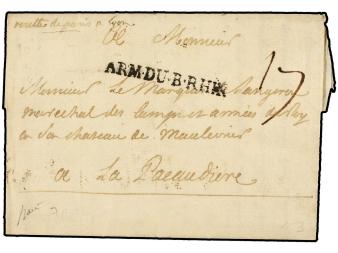 A Monsieur
ARM.DU.B.RHIN
17
Monsieur Le Marquis de Langeron
marechal des camps et armées du Roy
en son chateau de Maulevrier
a La Pacaudiere